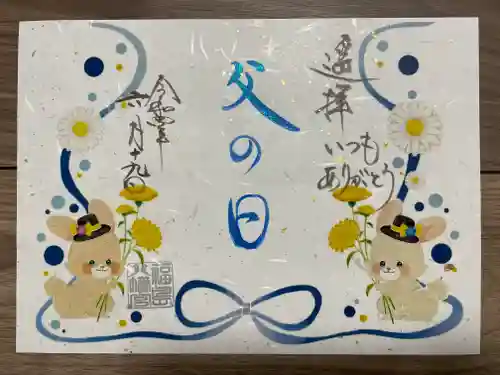 遥拝
いつも
ありがとう
父の日
令和四年
六月十九日
福島
八幡宮